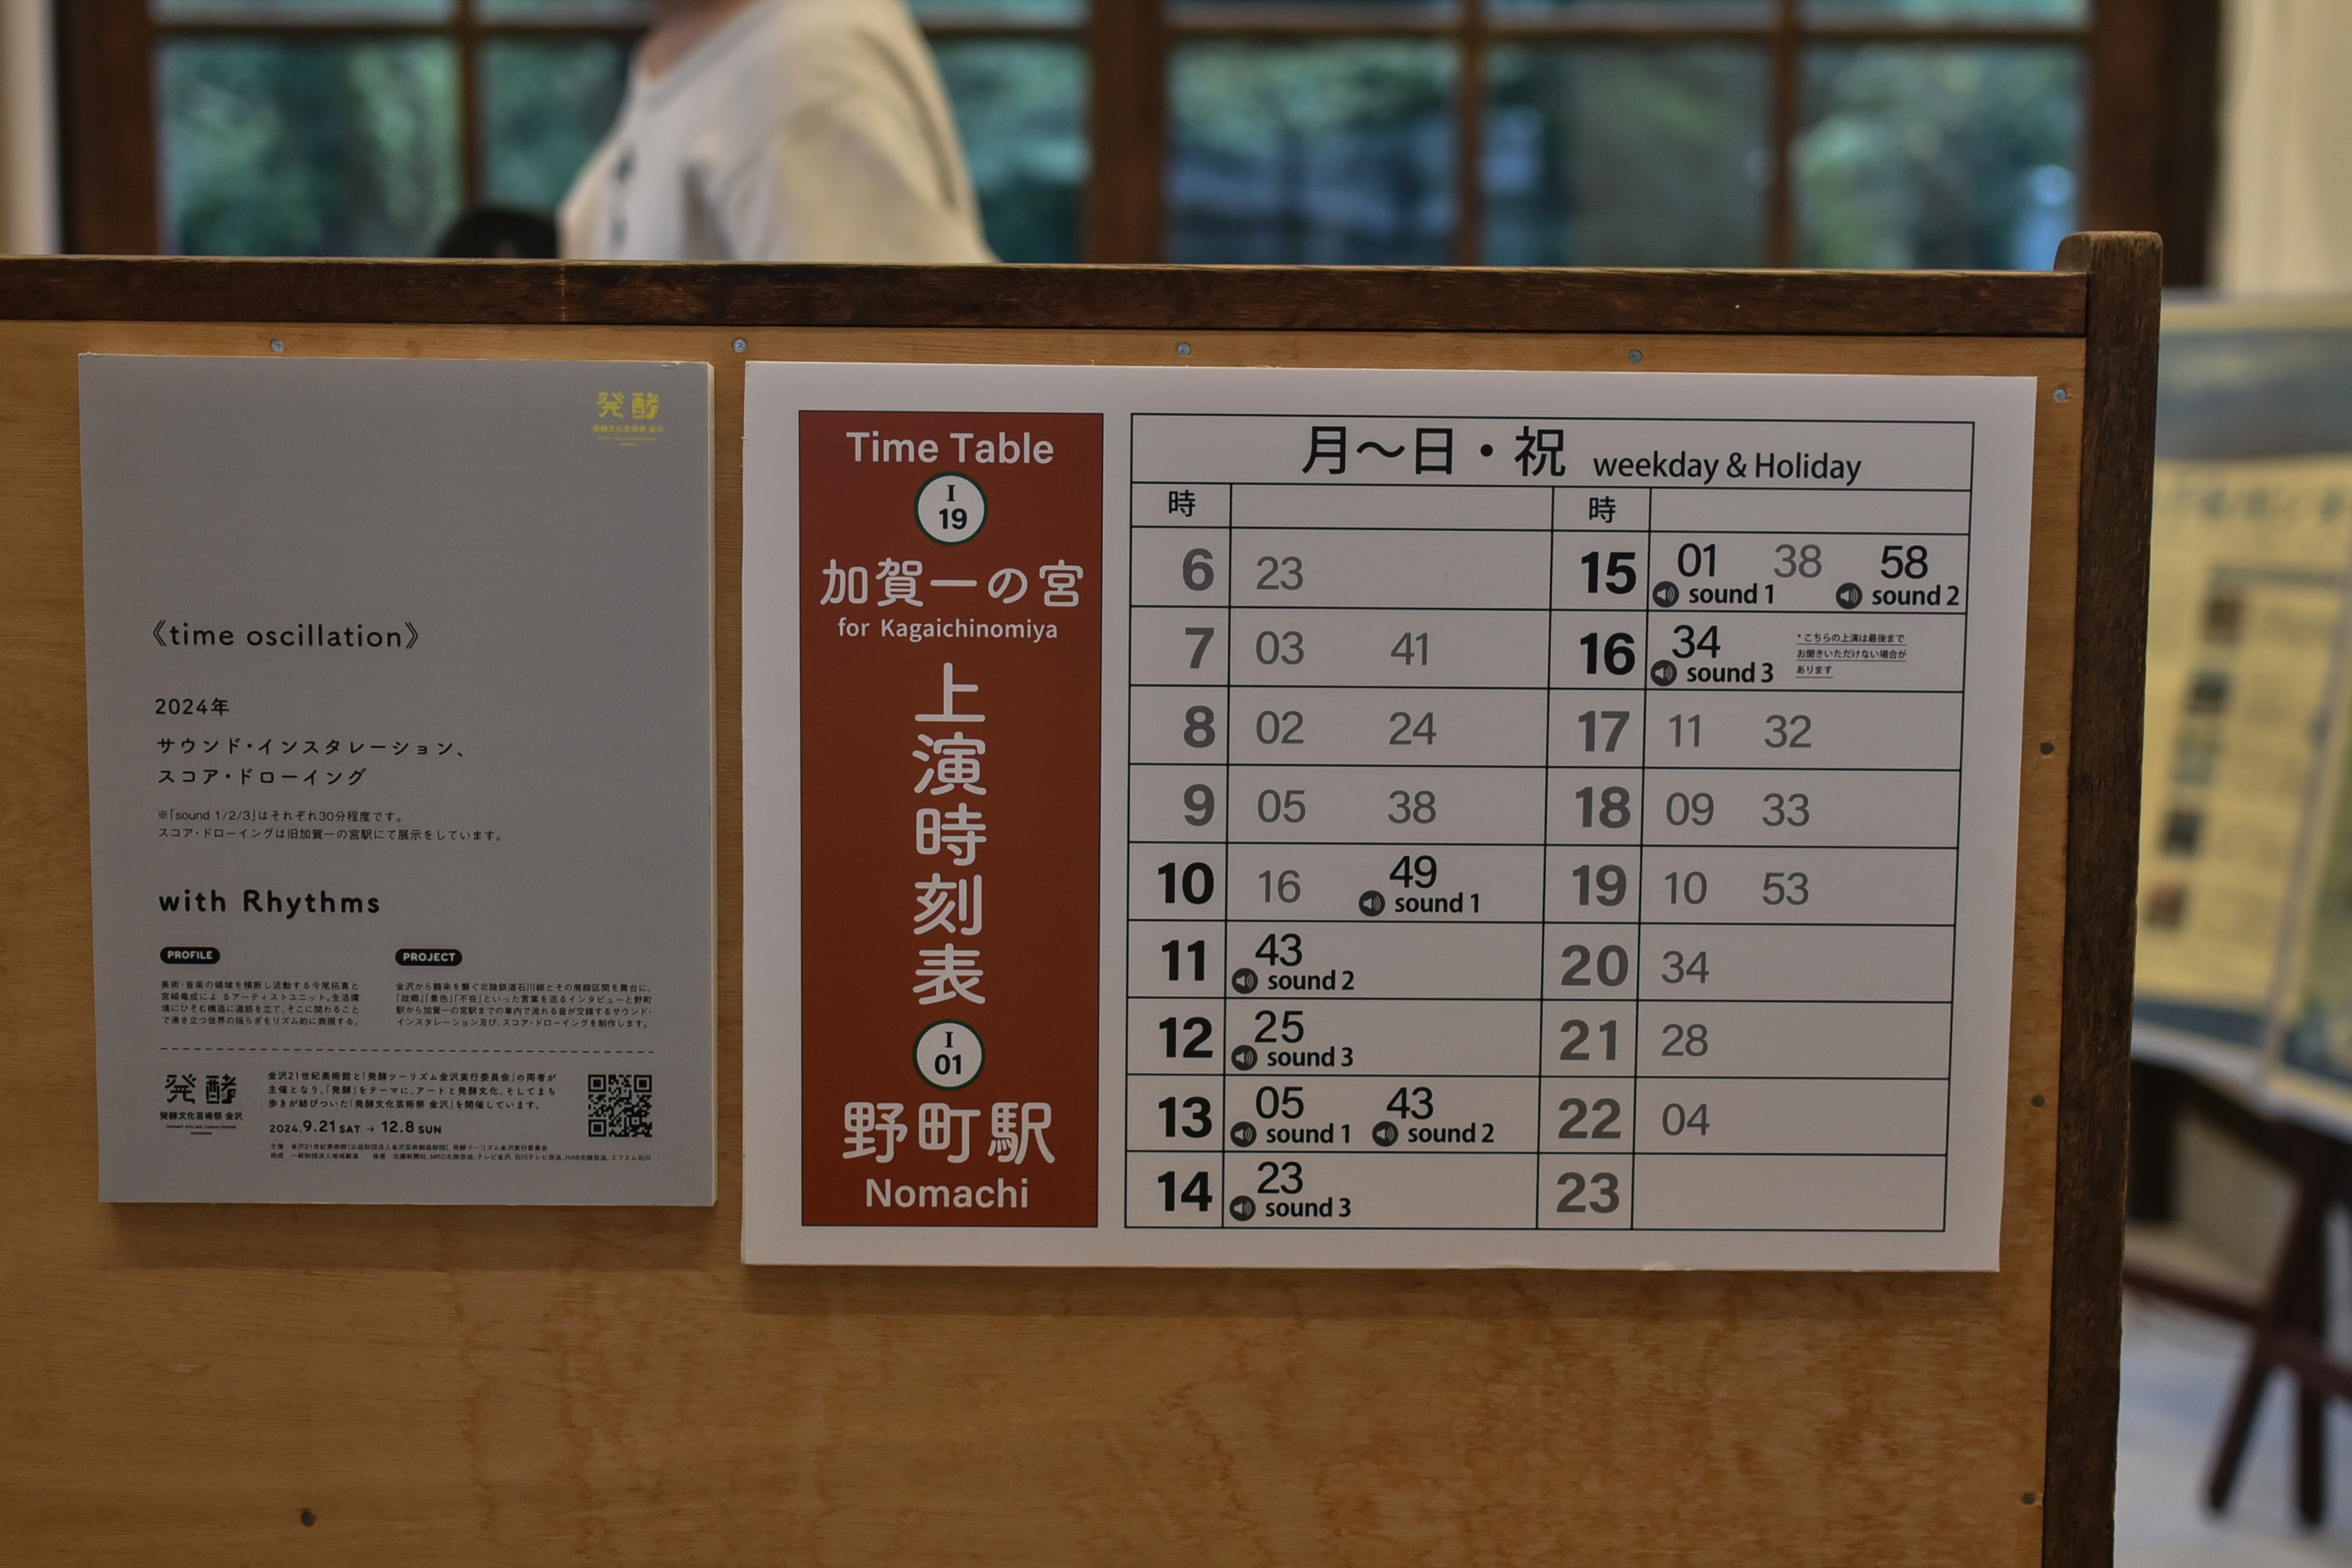 発酵
発酵文化芸術祭 金沢
《time oscillation》
2024年
サウンド・インスタレーション、
スコア・ドローイング
※「sound 1/2/3」はそれぞれ30分程度です。
スコア・ドローイングは旧加賀一の宮駅にて展示をしています。
with Rhythms
PROFILE
美術・音楽の領域を横断し活動する今尾拓真と
宮崎竜成によるアーティストユニット。生活環
境にひそむ構造に道筋を立て、そこに関わること
で沸き立つ世界の揺らぎをリズム的に表現する。
PROJECT
金沢から鶴来を繋ぐ北陸鉄道石川線とその廃線区間を舞台に、
「故郷」「景色」「不在」といった言葉を巡るインタビューと野町
駅から加賀一の宮駅までの車内で流れる音が交錯するサウンド・
インスタレーション及び、スコア・ドローイングを制作します。
発酵
発酵文化芸術祭 金沢
金沢21世紀美術館と「発酵ツーリズム金沢実行委員会」の両者が
主催となり、「発酵」をテーマに、アートと発酵文化、そしてまち
歩きが結びついた「発酵文化芸術祭 金沢」を開催しています。
2024.9.21 SAT → 12.8 SUN
主催 金沢21世紀美術館[公益財団法人金沢芸術創造財団]、発酵ツーリズム金沢実行委員会
助成 一般財団法人地域創造 後援 北國新聞社、MRO北陸放送、テレビ金沢、石川テレビ放送、HAB北陸放送、エフエム石川
Time Table
I
19
加賀一の宮
for Kagaichinomiya
上演時刻表
I
01
野町駅
Nomachi
月〜日・祝 weekday & Holiday
時 時
6 23
7 03 41
8 02 24
9 05 38
10 16 49
sound 1
11 43
sound 2
12 25
sound 3
13 05 43
sound 1 sound 2
14 23
sound 3
15 01 38 58
sound 1 sound 2
16 34
sound 3
*こちらの上演は最後まで
お聞きいただけない場合が
あります
17 11 32
18 09 33
19 10 53
20 34
21 28
22 04
23